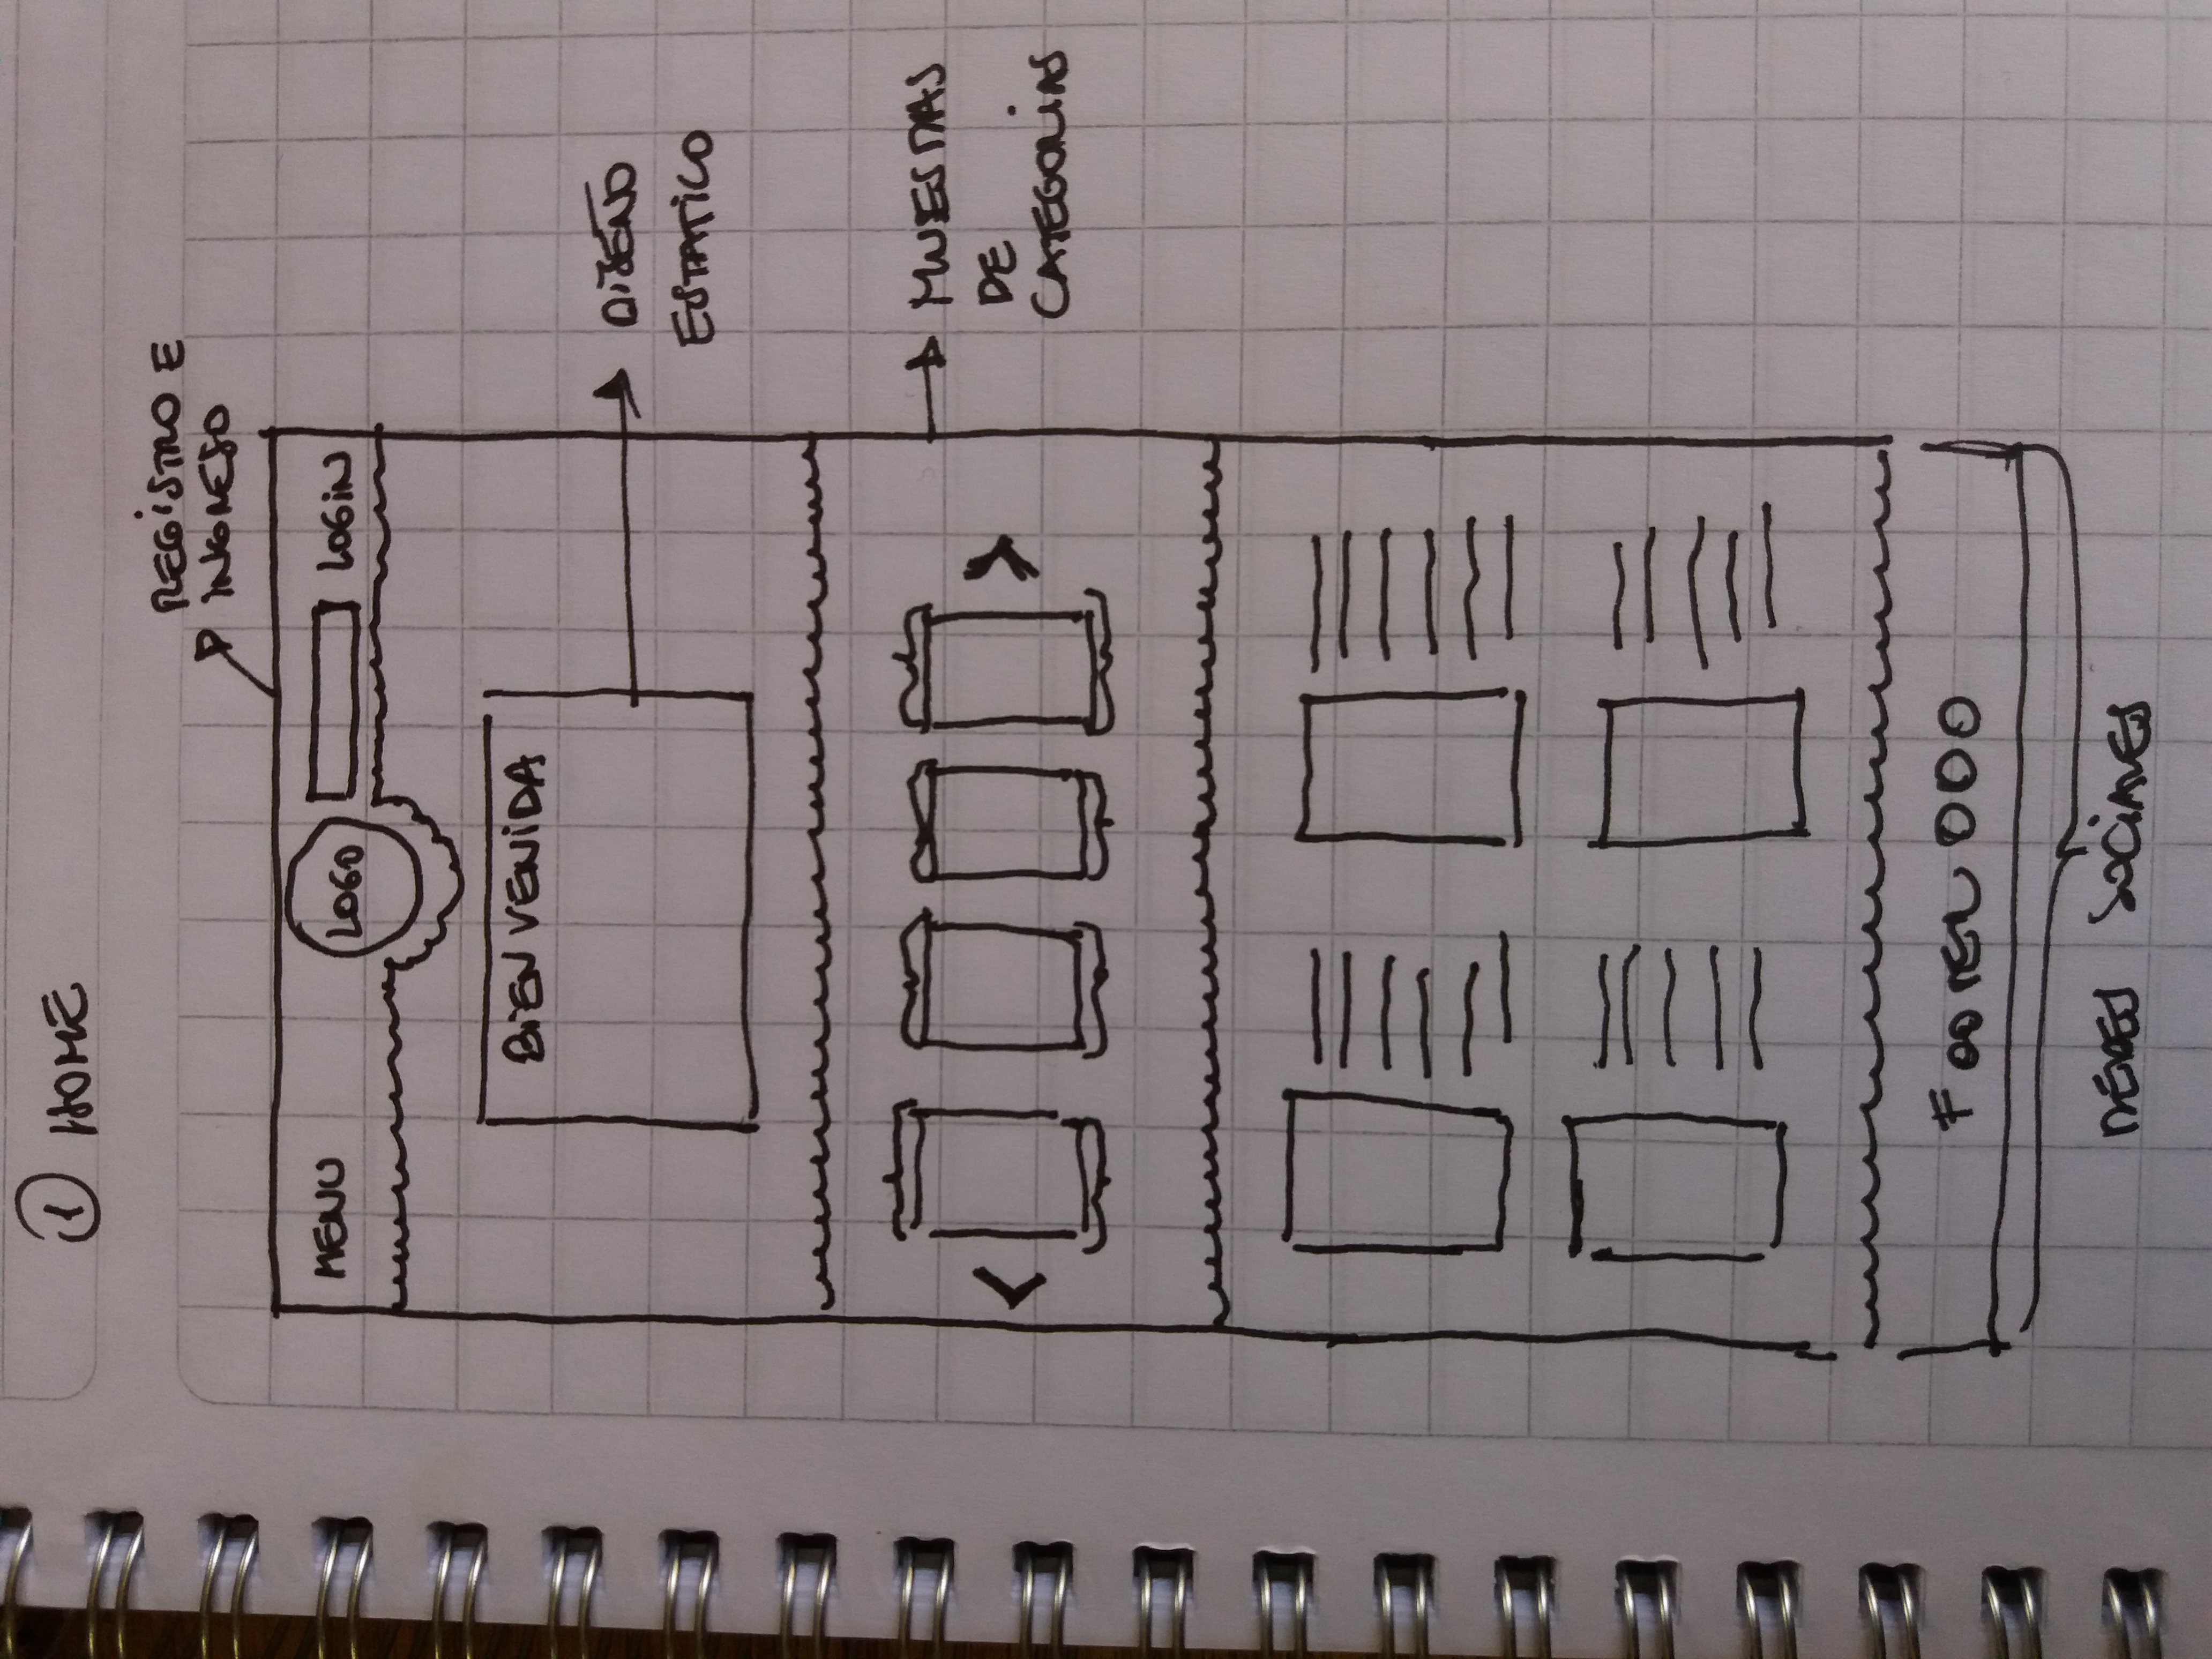 1 HOME
REGISTRO E
INGRESO
MENU
LOGO
LOGIN
BIENVENIDA
DISEÑO
ESTATICO
MUESTRAS
DE
CATEGORIAS
FOOTER
REDES SOCIALES